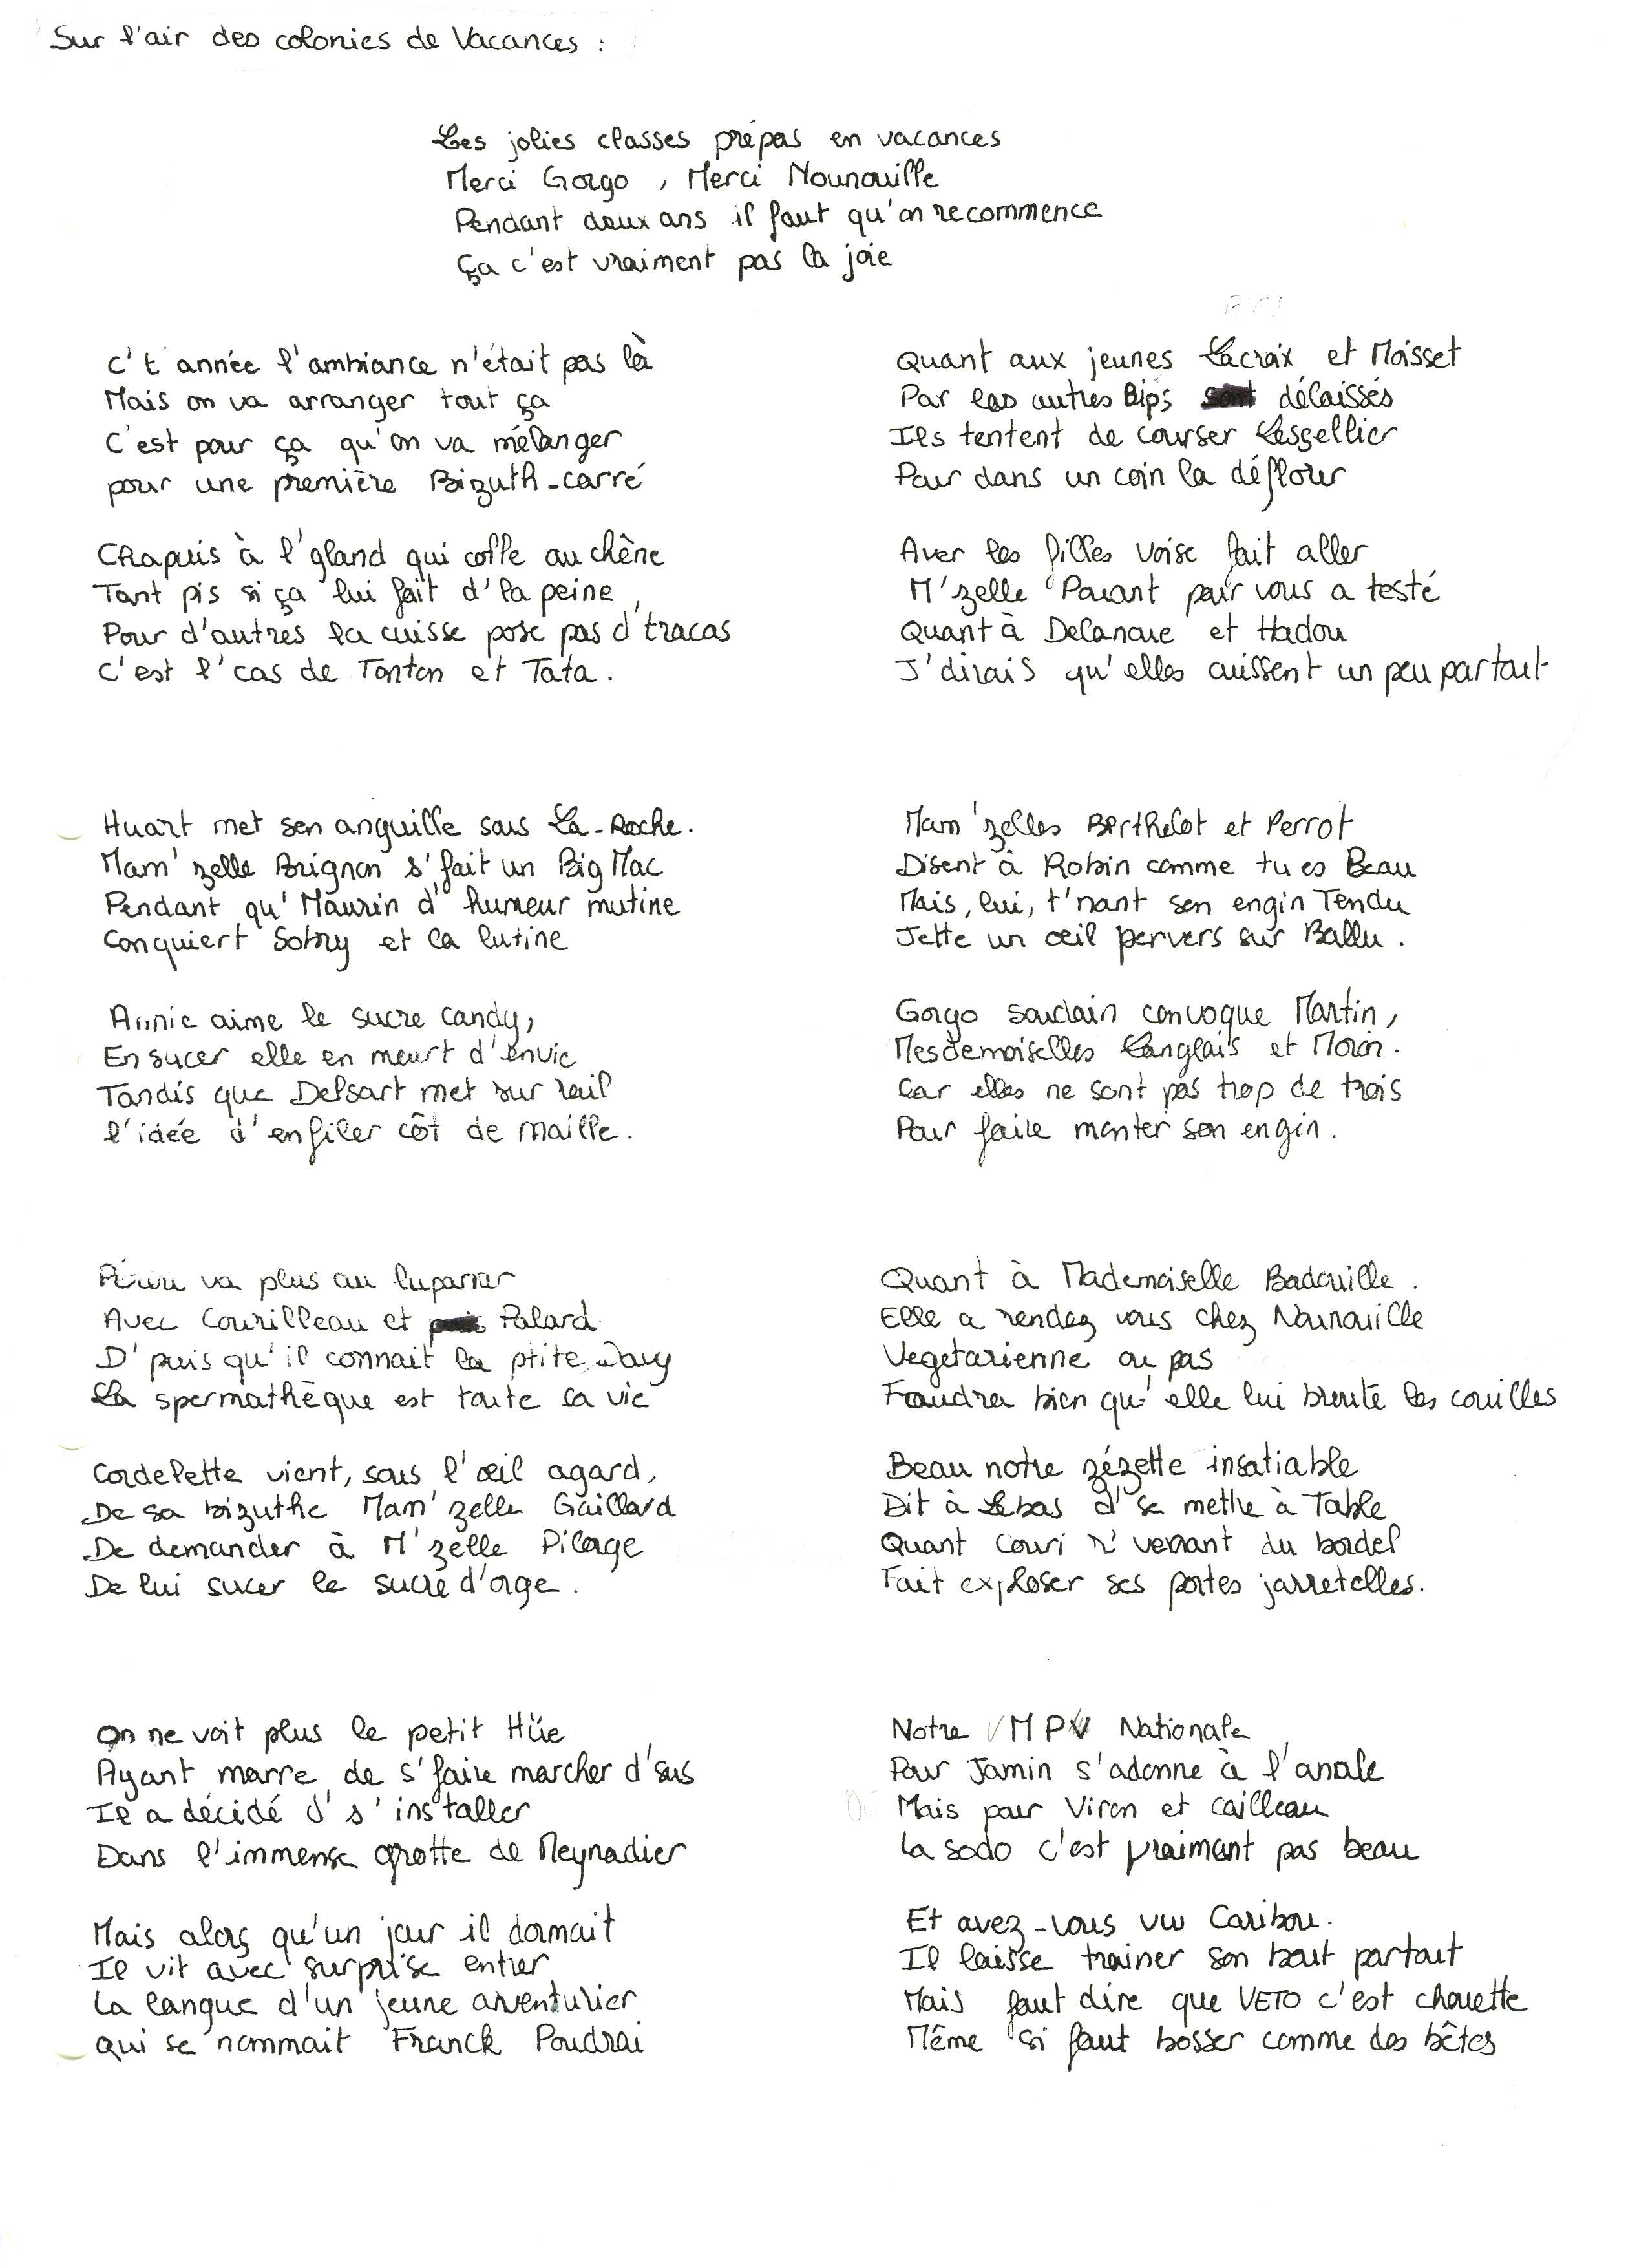 Sur l'air des colonies de Vacances :
Les jolies classes prépas en vacances
Merci Gorgo , Merci Nounouille
Pendant deux ans il faut qu'on recommence
Ça c'est vraiment pas la joie
C't année l'ambiance n'était pas là
Mais on va arranger tout ça
C'est pour ça qu'on va mélanger
pour une première Bizuth-carré
Chapuis à l'gland qui colle au chêne
Tant pis si ça lui fait d'la peine,
Pour d'autres la cuisse pose pas d'tracas
C'est l'cas de Tonton et Tata.
Huart met son anguille sous La-Roche.
Mam'zelle Brignon s'fait un Big Mac
Pendant qu'Maurin d'humeur mutine
Conquiert Sobry et la lutine
Annie aime le sucre candy,
En sucer elle en meurt d'envie
Tandis que Delsart met sur rail
l'idée d'enfiler côt de maille.
va plus au lupanar
Avec Courilleau et Palard
D'puis qu'il connait la ptite Davy
La spermathèque est toute sa vie
Cordelette vient, sous l'œil agard,
De sa bizuthe Mam'zelle Gaillard
De demander à M'zelle Pilorge
De lui sucer le sucre d'orge.
On ne voit plus le petit Hüe
Ayant marre de s'faire marcher d'sus
Il a décidé d's'installer
Dans l'immense grotte de Meynadier
Mais alors qu'un jour il dormait
Il vit avec surprise entrer
La langue d'un jeune aventurier
qui se nommait Franck Poudrai
Quant aux jeunes Lacroix et Moisset
Par les autres Bips délaissés
Ils tentent de courser Lesgellier
Pour dans un coin la déflorer
Avec les filles voise fait aller
M'zelle Pouant pour vous a testé
Quant à Delanoue et Hadou
J'dirais qu'elles cuissent un peu partout
Mam'zelles Berthelot et Perrot
Disent à Robin comme tu es Beau
Mais, lui, t'nant son engin Tendu
Jette un œil pervers sur Ballu.
Gorgo soudain convoque Martin,
Mesdemoiselles Langlais et Morin.
Car elles ne sont pas trop de trois
Pour faire monter son engin.
Quant à Mademoiselle Badouille.
Elle a rendez vous chez Nounouille
Vegetarienne ou pas
Faudra bien qu'elle lui broute les couilles
Beau notre zézette insatiable
Dit à Lebas d'se mettre à Table
Quant Couri r'venant du bordel
Fait exploser ses portes jarretelles.
Notre VMPV Nationale
Pour Jamin s'adonne à l'anale
Mais pour Viron et Cailleau
La sodo c'est vraiment pas beau
Et avez-vous vu Caribou.
Il laisse trainer son bout partout
Mais faut dire que VETO c'est chouette
Même si faut bosser comme des bêtes